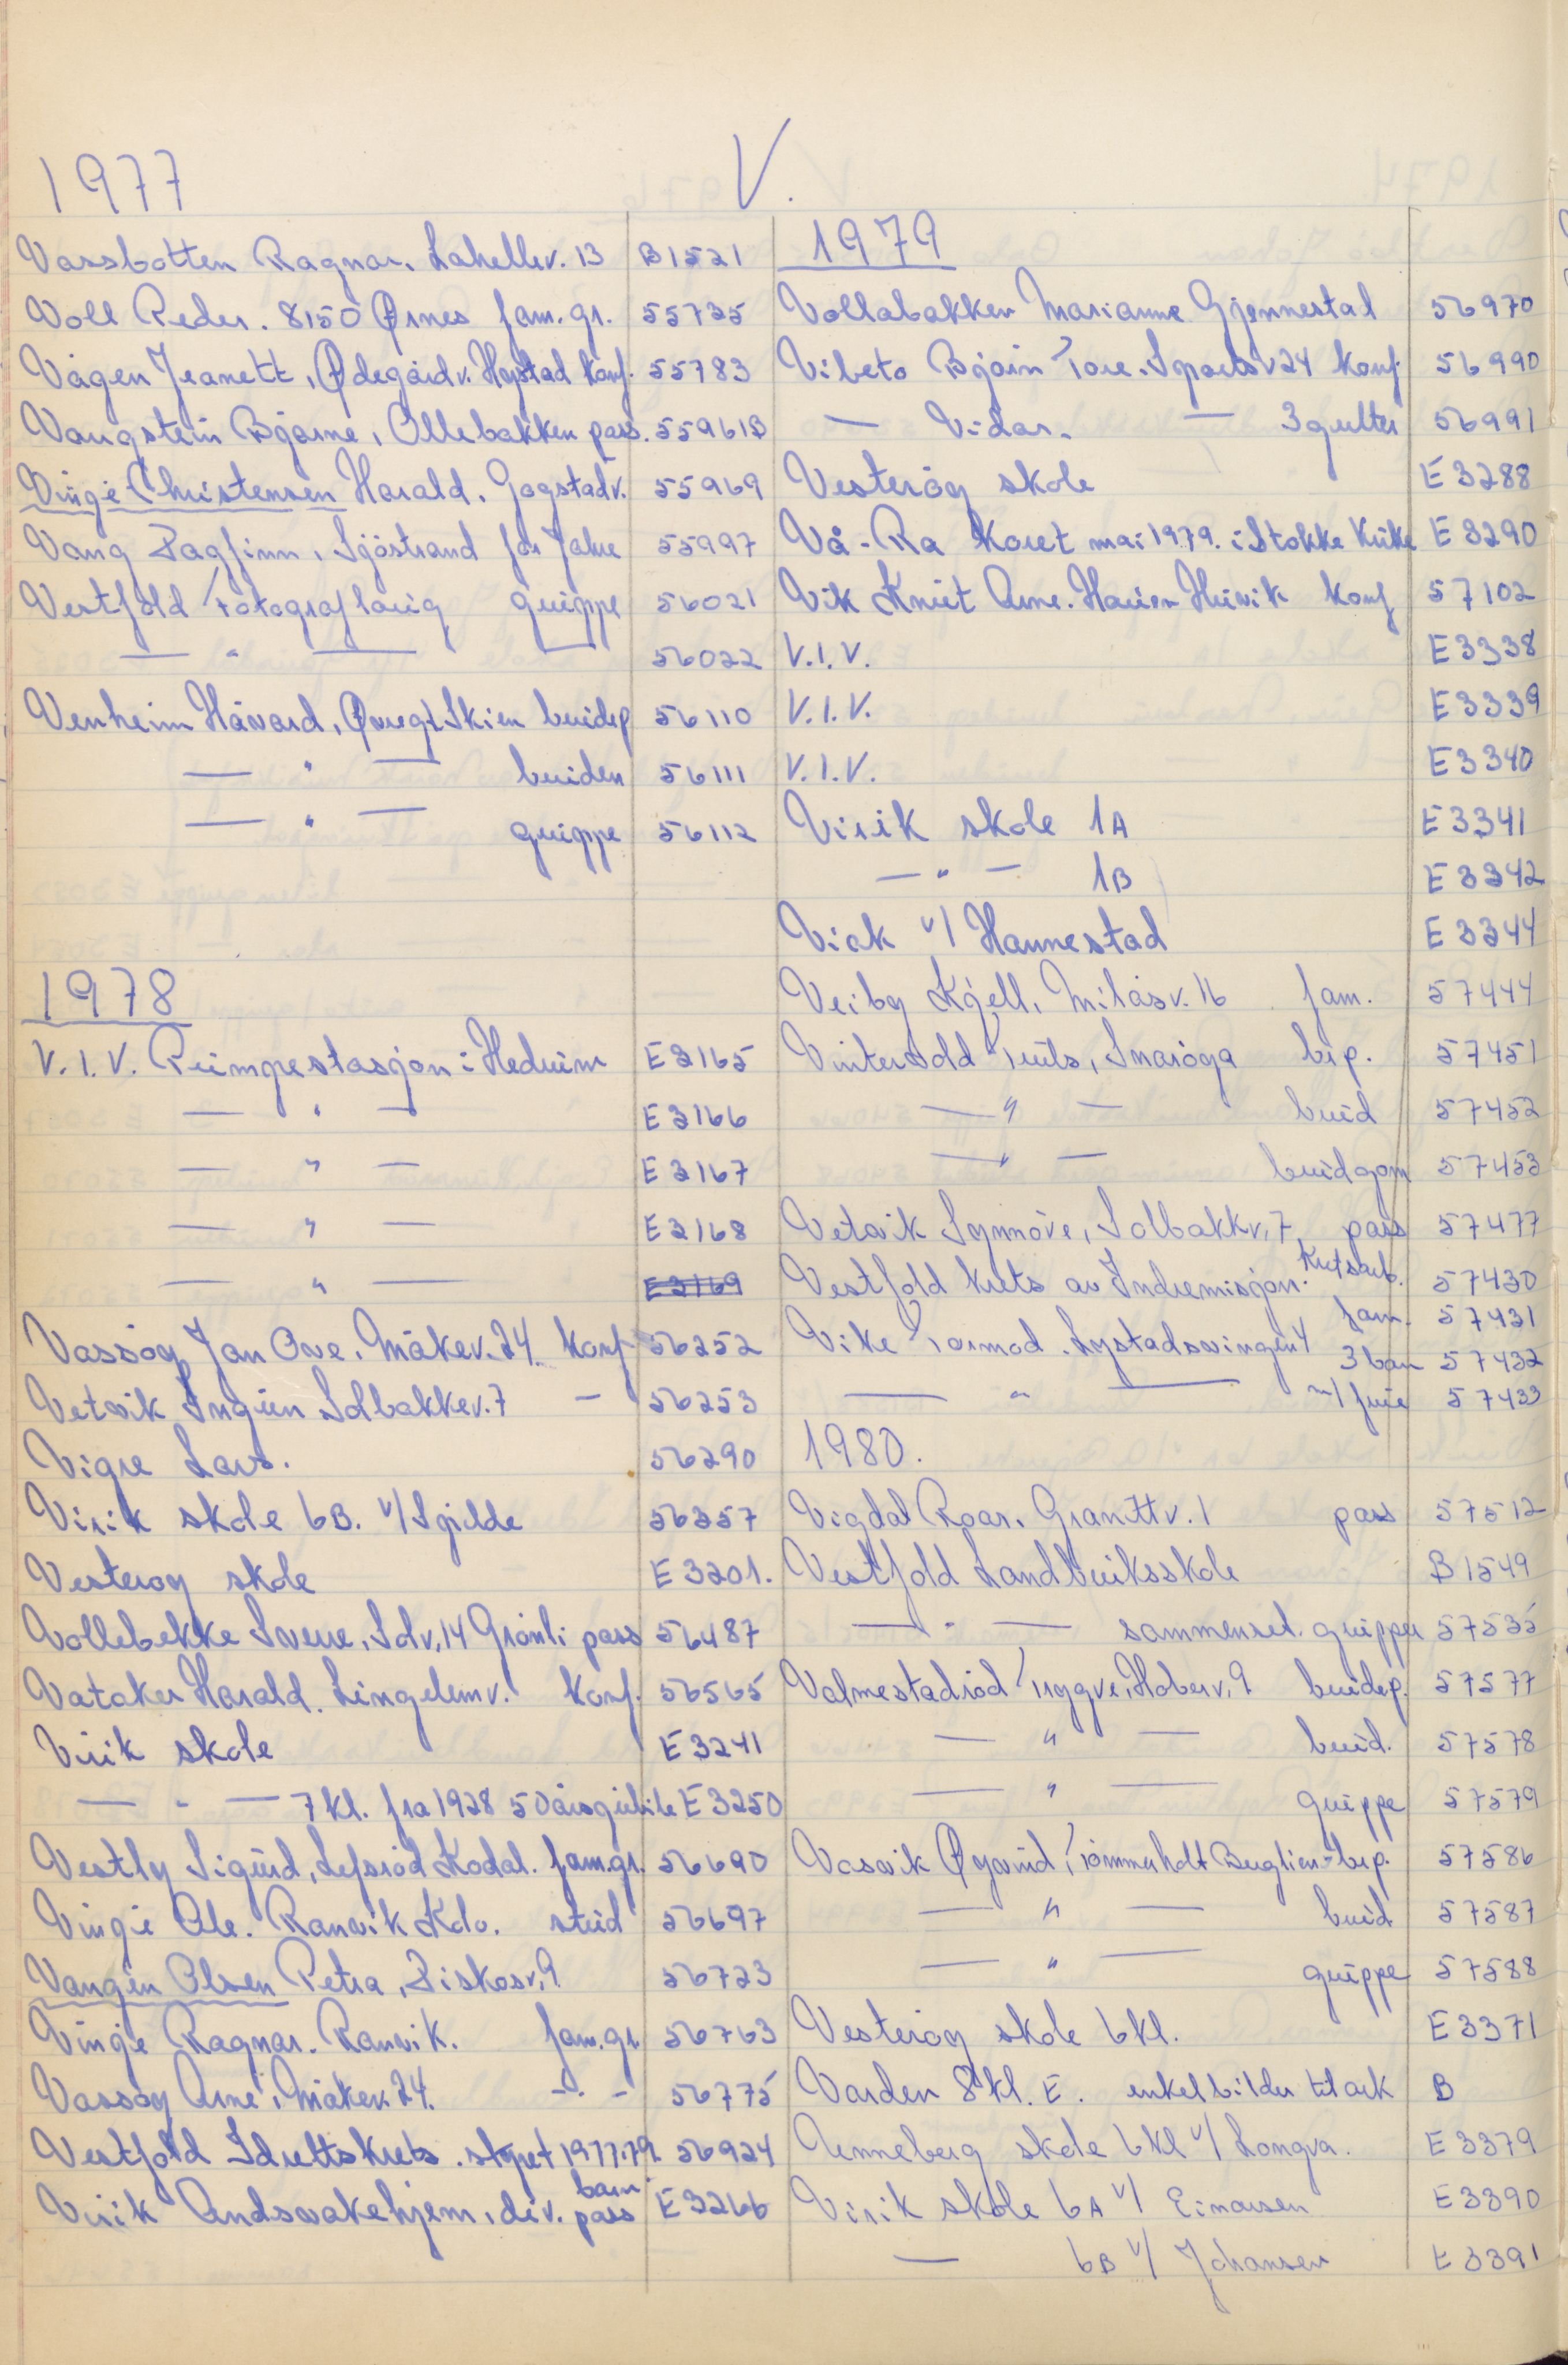 V.
1977
Vassbotten Ragnar. Lahellev. 13 B1521
Voll Peder. 8150 Ørnes fam. gr. 55735
Vågen Jeanett, Ødegårdv. Høystad konf. 55783
Vaugstein Bjarne, Ollebakken pass. 55961B
Vinge-Christensen Harald. Gogstadv. 55969
Vang Dagfinn, Sjöstrand for Jahre 55997
Vestfold Fotograflaug gruppe 56021
— " — 56022
Venheim Håvard, Øvregt Skien brudep 56110
— " — bruden 56111
— " — gruppe 56112
1978
V.I.V. Pumpestasjon i Hedrum E3165
— " — E3166
— " — E3167
— " — E3168
— " — E3169
Vassöy Jan Ove. Måkev. 24. konf 56252
Vetvik Ingunn Solbakkev. 7 — 56253
Vigre Lars. 56290
Virik skole 6B. v/Sjilde 56357
Vesteröy skole E3201.
Vollebekke Sverre, Solv. 14 Grönli pass 56487
Vataker Harald. Lingelemv. konf. 56565
Virik skole E3241
— " — 7 kl. fra 1928 50 årsjubile E3250
Vestly Sigurd, Lefsröd Kodal. fam.gr. 56690
Vinge Ole. Ranvik Kdo. stud 56697
Vangen Olsen Petra, Diskosv. 9 56723
Vinje Ragnar. Ranvik. fam.gr. 56763
Vassöy Arne, Måkev. 24. -"- 56775
Vestfold Idrettskrets. styret 1977-79. 56924
Virik Åndssvakehjem, div. barn pass E3266
1979
Vollabakken Marianne Gjennestal 56970
Vibeto Bjørn Tore. Sportsv 24 konf. 56990
— Vidar. — 3 gutter 56991
Vesteröy skole E3288
Vå-Ra Koret mai 1979. i Stokke Kirke E3290
Vik Knut Arne. Hauen Husvik konf 57102
V.I.V. E3338
V.I.V. E3339
V.I.V. E3340
Virik skole 1A E3341
— " — 1B E3342
Vick v/ Hannestad E3344
Veiby Kjell, Milåsv. 16 fam. 57444
Vintervold Truls, Smaröga brp. 57451
— " — brud 57452
— " — brudgom 57453
Vetvik Synnöve, Solbakkv. 7, pass 57477
Vestfold krets av Indremisjon. Kretsarb. 57430
Vike Tormod. Lystadsvingen 4 fam. 57431
3 barn 57432
— " — m/ frue 57433
1980.
Vigdal Roar. Granittv. 1 pass 57512
Vestfold Landbruksskole B1549
— " — sammensed. grupper 57535
Valmestadröd Tryggve, Hoberv. 9 brudep. 57577
— " — brud. 57578
— " — gruppe 57579
Vasvik Øyvind, Tömmerholt Berglien brp. 57586
— " — brud 57587
— " — gruppe 57588
Vesteröy skole 6 kl. E3371
Varden 8 kl. E. enkelbilder til ark B
Venneberg skole 6 kl v/ Longva. E3379
Virik skole 6A v/ Einarsen E3390
— 6B v/ Johansen E3391